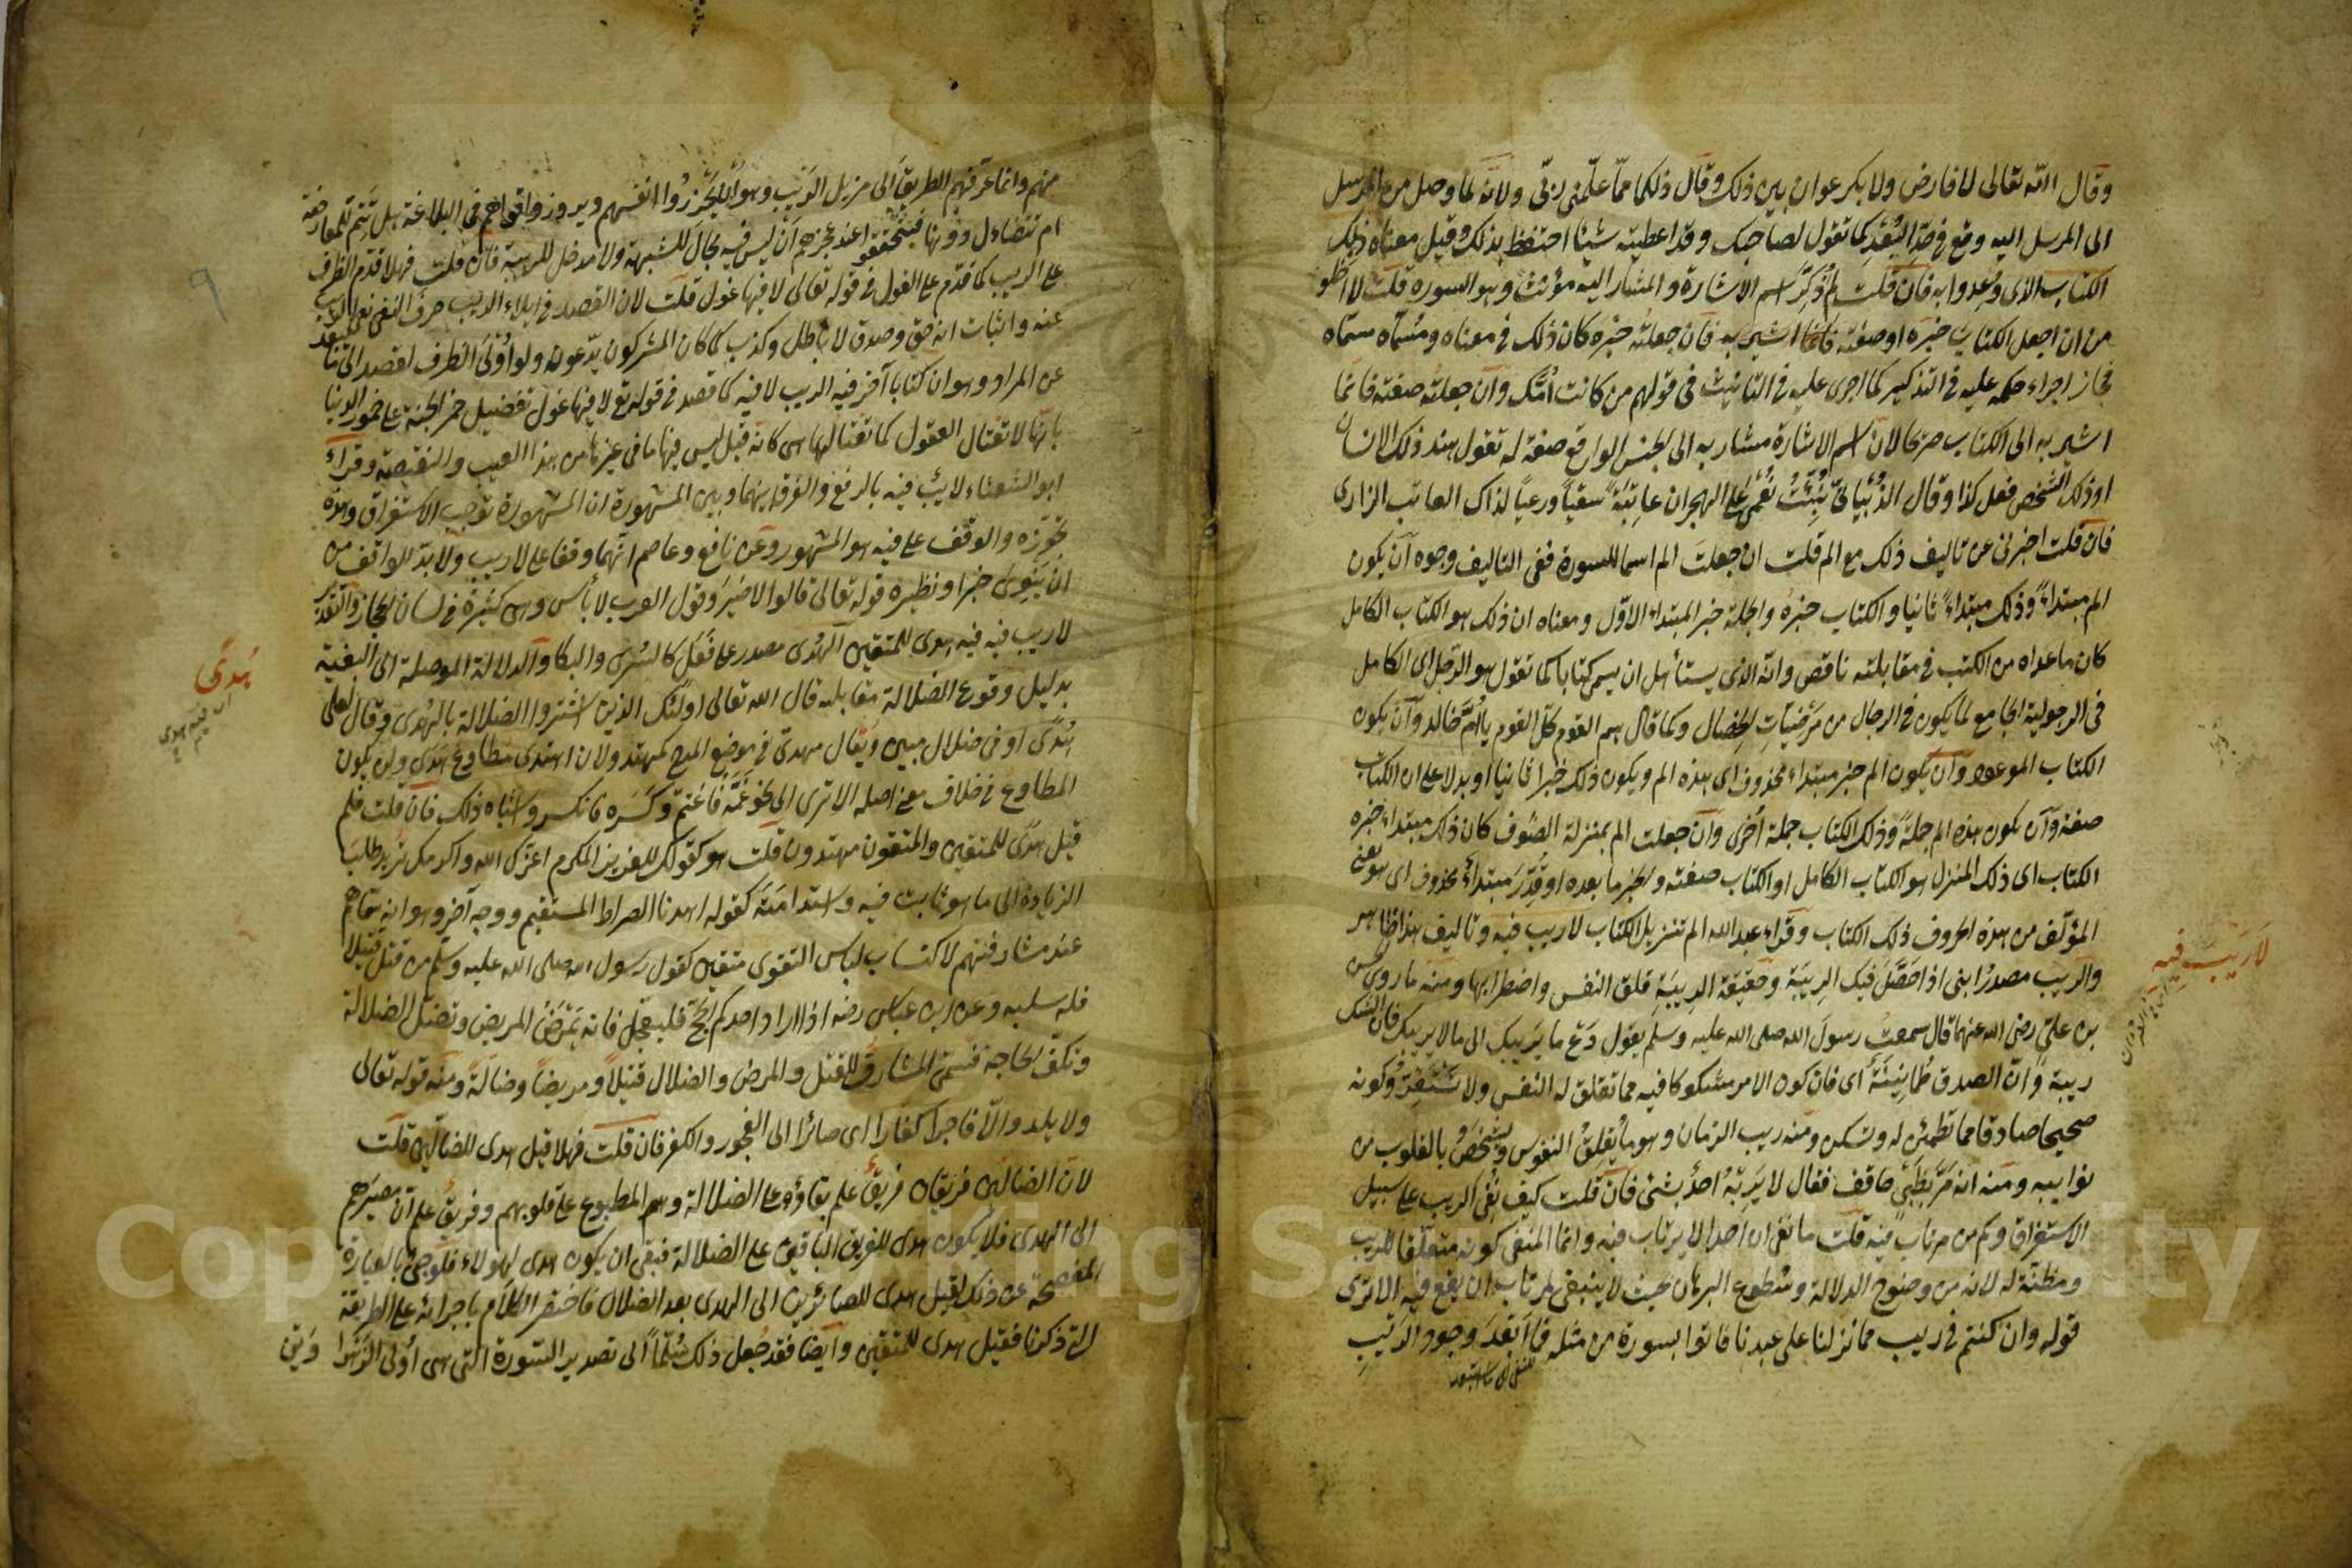 وقال الله تعالى لا فارض ولا بكر عوان بين ذلك وقال ذلكما مما علمنى ربى ولانه لما وصل من المرسل
الى المرسل اليه وقع فى حد البعد كما تقول لصاحبك وقد اعطيته شيئا احتفظ بذلك وقيل معناه ذلك
الكتاب الذى وعدوا به فان قلت لم ذكر اسم الاشارة والمشار اليه مؤنث وهو السورة قلت لا اخلو
من ان اجعل الكتاب خبره او صفته فان جعلته خبره كان ذلك فى معناه ومسماه مسماه
فجاز اجراء حكمه عليه فى التذكير كما اجرى عليه فى التانيث فى قولهم من كانت امك وان جعلته صفته فانما
اشير به الى الكتاب صريحا لان اسم الاشارة مشار به الى الجنس الواقع صفة له تقول هند ذلك الانسان
او ذلك الشخص فعل كذا وقال الذبيانى نبئت نعمى على الهجران عاتبة سقيا ورعيا لذاك العاتب الزارى
فان قلت اخبرنى عن تاليف ذلك مع الم قلت ان جعلت الم اسما للسورة ففى التاليف وجوه ان يكون
الم مبتداء وذلك مبتداء ثانيا والكتاب خبره والجملة خبر المبتداء الاول ومعناه ان ذلك هو الكتاب الكامل
كان ما عداه من الكتب فى مقابلته ناقص وانه الذى يستأهل ان يسمى كتابا كما تقول هو الرجل اى الكامل
فى الرجولية الجامع لما يكون فى الرجال من مرضيات الخصال وكما قال هم القوم كل القوم يا ام خالد وان يكون
الكتاب الموعود وان يكون الم خبر مبتداء محذوف اى هذه الم ويكون ذلك خبرا ثانيا او بدلا على ان الكتاب
صفة وان يكون هذه الم جملة وذلك الكتاب جملة اخرى وان جعلت الم بمنزلة الصوت كان ذلك مبتداء خبره
الكتاب اى ذلك المنزل هو الكتاب الكامل او الكتاب صفته والخبر ما بعده او قدر مبتداء محذوف اى هو يعنى
المؤلف من هذه الحروف ذلك الكتاب وقراء عبد الله الم تنزيل الكتاب لا ريب فيه وتاليف هذا ظاهر
والريب مصدر رابنى اذا حصل فيك الريبة وحقيقة الريبة قلق النفس واضطرابها ومنه ما روى الحسن
بن على رضى الله عنهما قال سمعت رسول الله صلى الله عليه وسلم يقول دع ما يريبك الى ما لا يريبك فان الشك
ريبة وان الصدق طمانينة اى فان كون الامر مشكوكا فيه مما تقلق له النفس ولا تستقر وكونه
صحيحا صادقا مما تطمئن له وتسكن ومنه ريب الزمان وهو ما يقلق النفوس ويشخص بالقلوب من
نوايبه ومنه انه مر بظبى حاقف فقال لا يربه احد بشئ فان قلت كيف نفى الريب على سبيل
الاستغراق وكم من مرتاب فيه قلت ما نفى ان احدا لا يرتاب فيه وانما المنفى كونه متعلقا للريب
ومظنة له لانه من وضوح الدلالة وسطوع البرهان بحيث لا ينبغى لمرتاب ان يقع فيه الا ترى
قوله وان كنتم فى ريب مما نزلنا على عبدنا فاتوا بسورة من مثله فما ابعد وجود الريب
لا ريب فيه
منهم وانما عرفهم الطريق الى مزيل الريب وهو ان يحزروا انفسهم ويروزوا قواهم فى البلاغة هل تتم للمعارضة
ام تتضاءل دونها فيتحققوا عند عجزهم ان ليس فيه مجال للشبهة ولا مدخل للريبة فان قلت فهلا قدم الظرف
على الريب كما قدم على الغول فى قوله تعالى لا فيها غول قلت لان القصد فى ايلاء الريب حرف النفى نفى الريب
عنه واثبات انه حق وصدق لا باطل وكذب كما كان المشركون يدعونه ولو اولى الظرف لقصد الى ما يبعد
عن المراد وهو ان كتابا آخر فيه الريب لا فيه كما قصد فى قوله تع لا فيها غول تفضيل خمر الجنة على خمور الدنيا
بانها لا تغتال العقول كما تغتالها هى كانه قيل ليس فيها ما فى غيرها من هذا العيب والنقيصة وقراء
ابو الشعثاء لا ريب فيه بالرفع والفرق بينها وبين المشهورة ان المشهورة توجب الاستغراق وهذه
تجوزه والوقف على فيه هو المشهور وعن نافع وعاصم انهما وقفا على لا ريب ولا بد للواقف من
ان ينوى خبرا ونظيره قوله تعالى قالوا لا ضير وقول العرب لا بأس وهى كثيرة فى لسان الحجاز والتقدير
لا ريب فيه فيه هدى للمتقين الهدى مصدر على فعل كالسرى والبكا والدلالة الموصلة الى البغية
بدليل وقوع الضلالة مقابله قال الله تعالى اولئك الذين اشتروا الضلالة بالهدى وقال لعلى
هدى او فى ضلال مبين ويقال مهدى فى موضع المدح كمهتد ولان اهتدى مطاوع هدى ولن يكون
المطاوع فى خلاف معنى اصله الا ترى الى نحو غمه فاغتم وكسره فانكسر واشباه ذلك فان قلت فلم
قيل هدى للمتقين والمتقون مهتدون قلت هو كقولك للعزيز المكرم اعزك الله واكرمك تريد طلب
الزيادة الى ما هو ثابت فيه واستدامته كقوله اهدنا الصراط المستقيم ووجه آخر وهو انه سماهم
عند مشارفتهم لاكتساب لباس التقوى متقين كقول رسول الله صلى الله عليه وسلم من قتل قتيلا
فله سلبه وعن ابن عباس رضه اذا اراد احدكم الحج فليعجل فانه يمرض المريض وتضل الضالة
وتكف الحاجة فسمى المشارف للقتل والمرض والضلال قتيلا ومريضا وضالة ومنه قوله تعالى
ولا يلدوا الا فاجرا كفارا اى صائرا الى الفجور والكفر فان قلت فهلا قيل هدى للضالين قلت
لان الضالين فريقان فريق علم بقاؤه على الضلالة وهم المطبوع على قلوبهم وفريق علم ان مصيرهم
الى الهدى فلا يكون هدى للفريق الباقين على الضلالة فبقى ان يكون هدى لهؤلاء فلو جئ بالعبارة
المفصحة عن ذلك لقيل هدى للصائرين الى الهدى بعد الضلال فاختصر الكلام باجرائه على الطريقة
التى ذكرنا فقيل هدى للمتقين وايضا فقد جعل ذلك سلما الى تصدير السورة التى هى اولى الزهراوين
هدى
٩